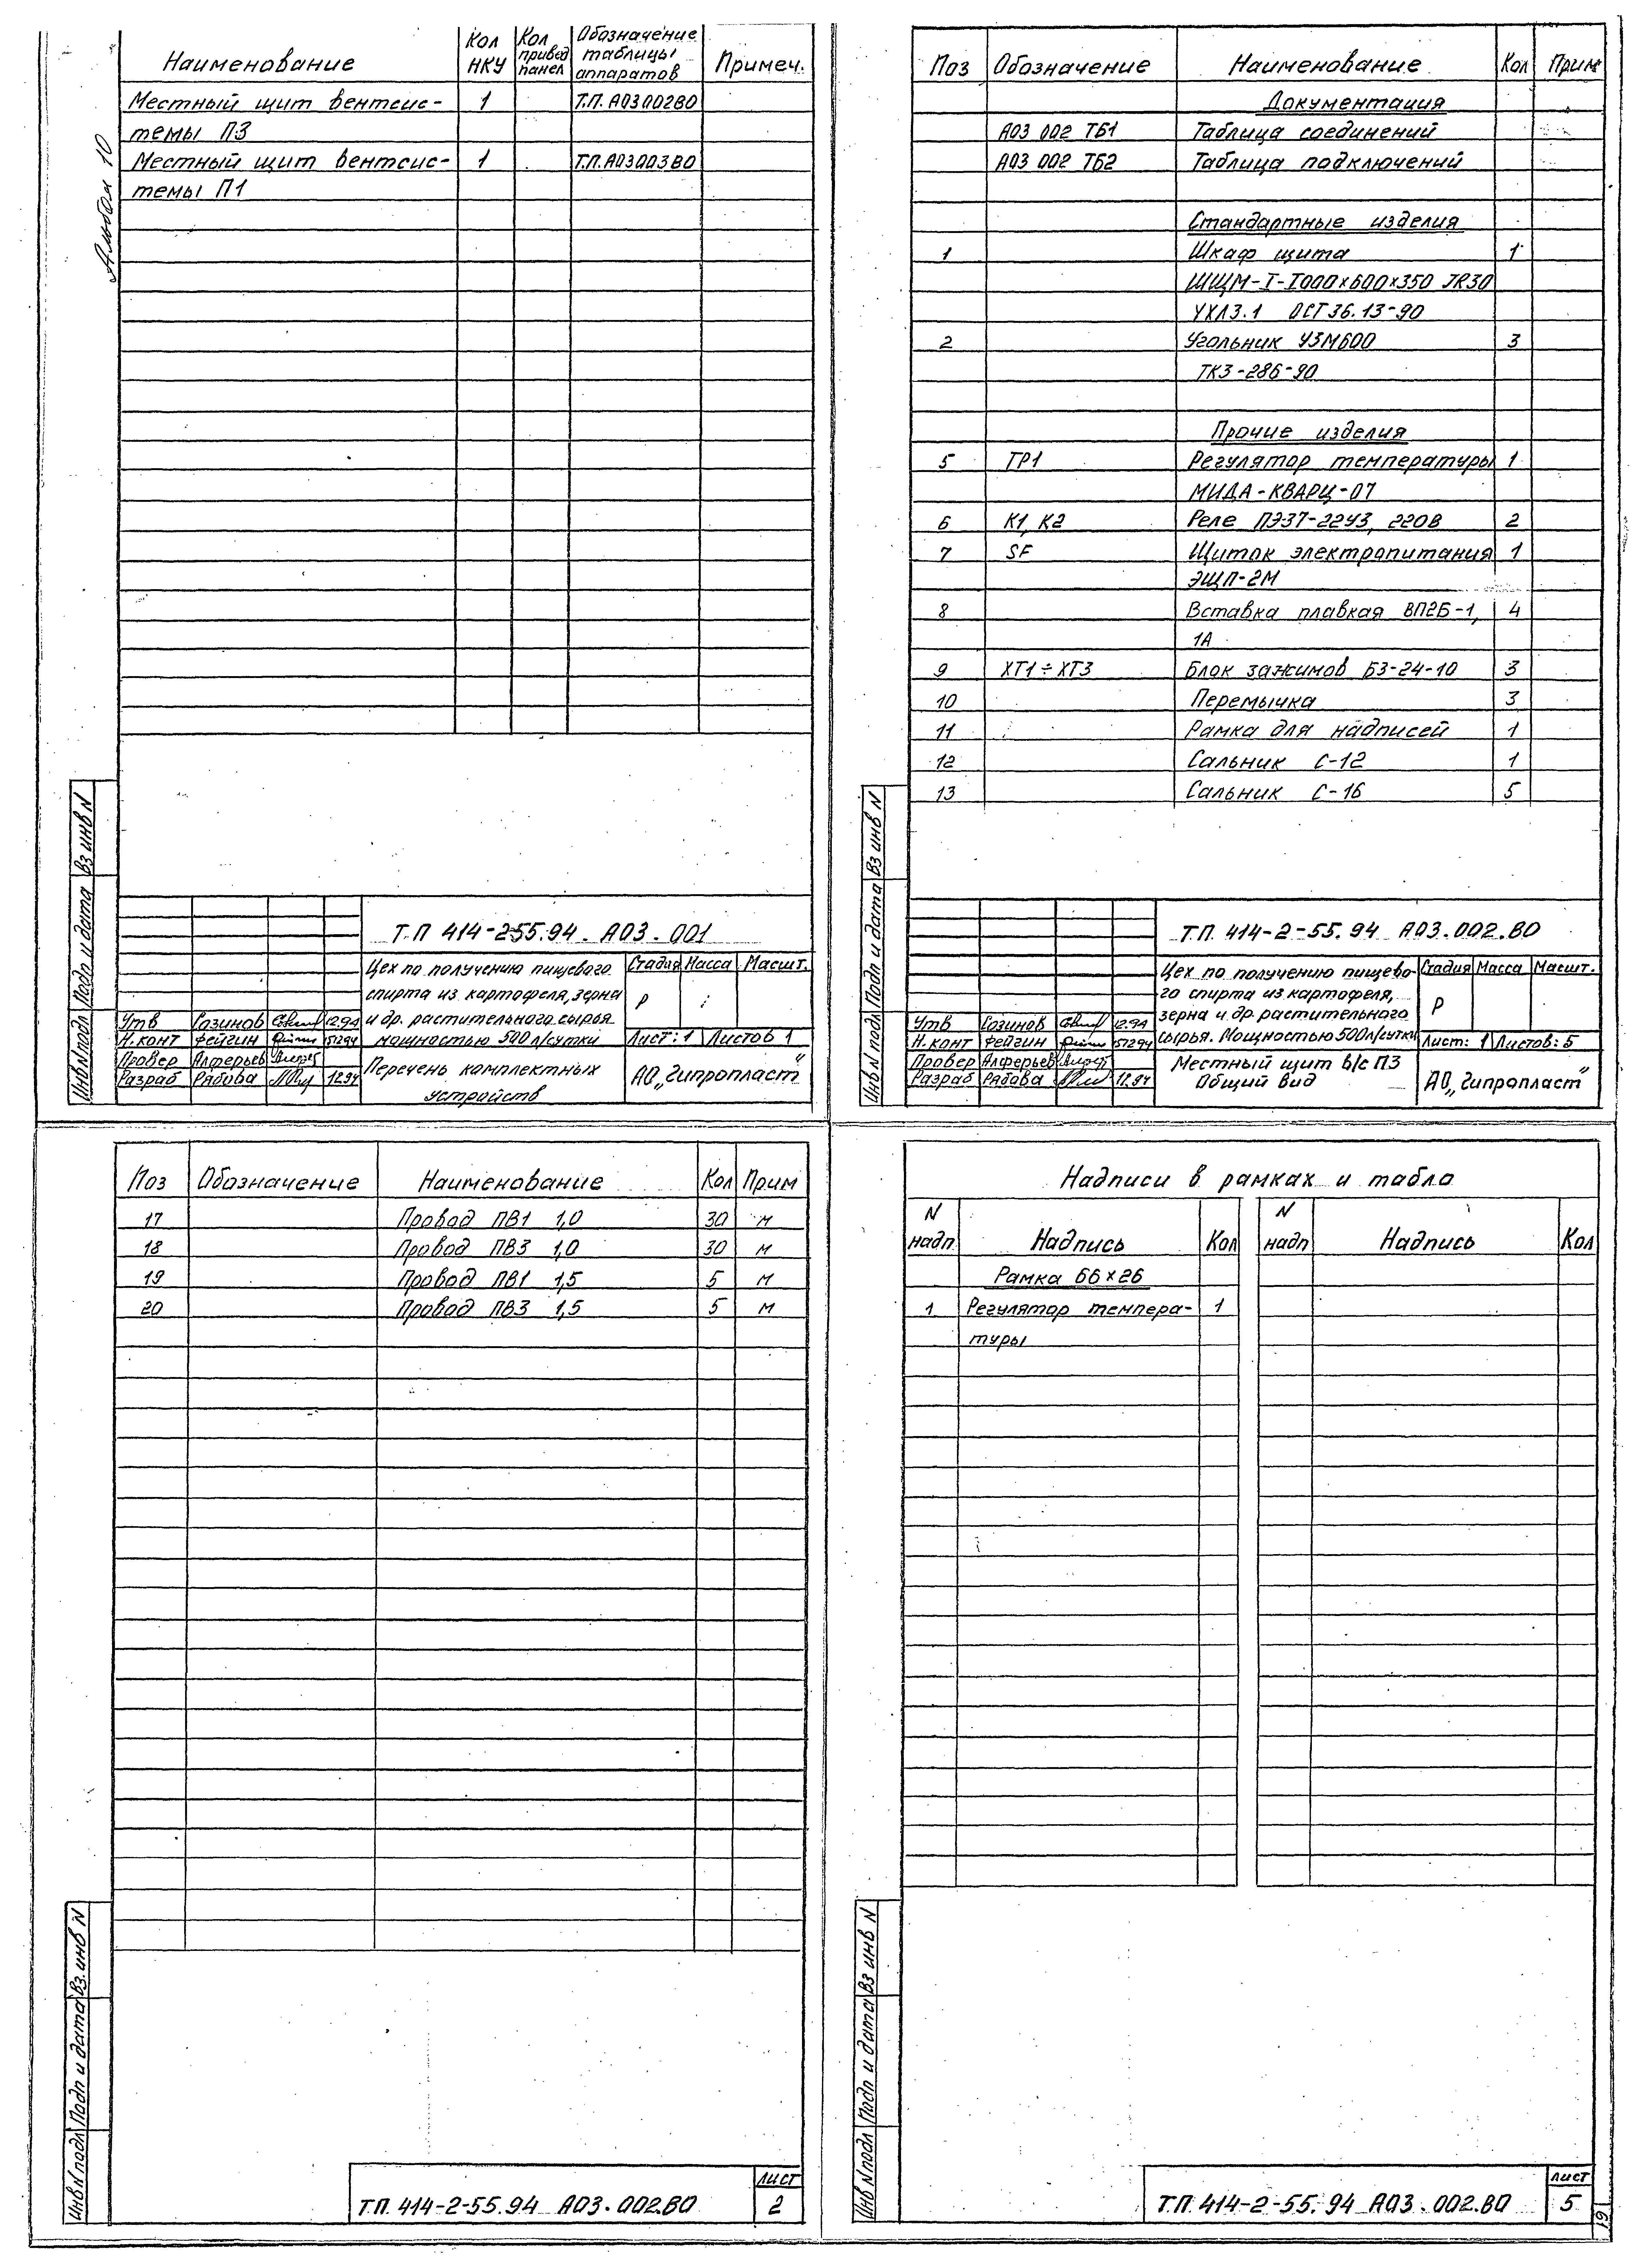 Альбом 10
Наименование | Кол НКУ | Кол привод панел | Обозначение таблицы аппаратов | Примеч.
Местный щит вентсис- | 1 | Т.П. А03002В0
темы П3
Местный щит вентсис- | 1 | Т.П. А03003В0
темы П1
Инв N подл | Подп и дата | Вз инв N
ТП 414-2-55.94. А03.001
Цех по получению пищевого
спирта из картофеля, зерна
и др. растительного сырья
мощностью 500 л/сутки
Стадия | Масса | Масшт.
Р
Лист: 1 | Листов 1
Утв | Созинов | 12.94
Н.конт | Фейгин | 51294
Провер | Алферьев
Разраб | Рябова | 12.94
Перечень комплектных
устройств
АО „Гипропласт"
Поз | Обозначение | Наименование | Кол | Прим
Документация
А03 002 ТБ1 | Таблица соединений
А03 002 ТБ2 | Таблица подключений
Стандартные изделия
1 | Шкаф щита | 1
ШЩМ-I-I000×600×350 JR30
УХЛ3.1 ОСТ 36.13-90
2 | Угольник УЗМ600 | 3
ТК3-286-90
Прочие изделия
5 | ТР1 | Регулятор температуры | 1
МИДА-КВАРЦ-07
6 | К1, К2 | Реле ПЭ37-22У3, 220В | 2
7 | SF | Щиток электропитания | 1
ЭЩП-2М
8 | Вставка плавкая ВП2Б-1, | 4
1А
9 | ХТ1÷ХТ3 | Блок зажимов БЗ-24-10 | 3
10 | Перемычка | 3
11 | Рамка для надписей | 1
12 | Сальник С-12 | 1
13 | Сальник С-16 | 5
Инв N подл | Подп и дата | Вз инв N
Т.П. 414-2-55.94 А03.002.В0
Цех по получению пищево-
го спирта из картофеля,
зерна и др. растительного
сырья. Мощностью 500л/сутки
Стадия | Масса | Масшт.
Р
Лист: 1 | Листов: 5
Утв | Созинов | 12.94
Н.конт | Фейгин | 51294
Провер | Алферьев
Разраб | Рябова | 12.94
Местный щит в/с П3
Общий вид
АО „Гипропласт"
Поз | Обозначение | Наименование | Кол | Прим
17 | Провод ПВ1 1,0 | 30 | м
18 | Провод ПВ3 1,0 | 30 | м
19 | Провод ПВ1 1,5 | 5 | м
20 | Провод ПВ3 1,5 | 5 | м
Инв N подл | Подп и дата | Вз. инв N
Т.П. 414-2-55.94 А03.002.В0
Лист
2
Надписи в рамках и табло
N надп. | Надпись | Кол | N надп | Надпись | Кол
Рамка 66×26
1 | Регулятор темпера- | 1
туры
Инв N подл | Подп и дата | Вз инв N
Т.П. 414-2-55.94 А03.002.В0
Лист
5
19